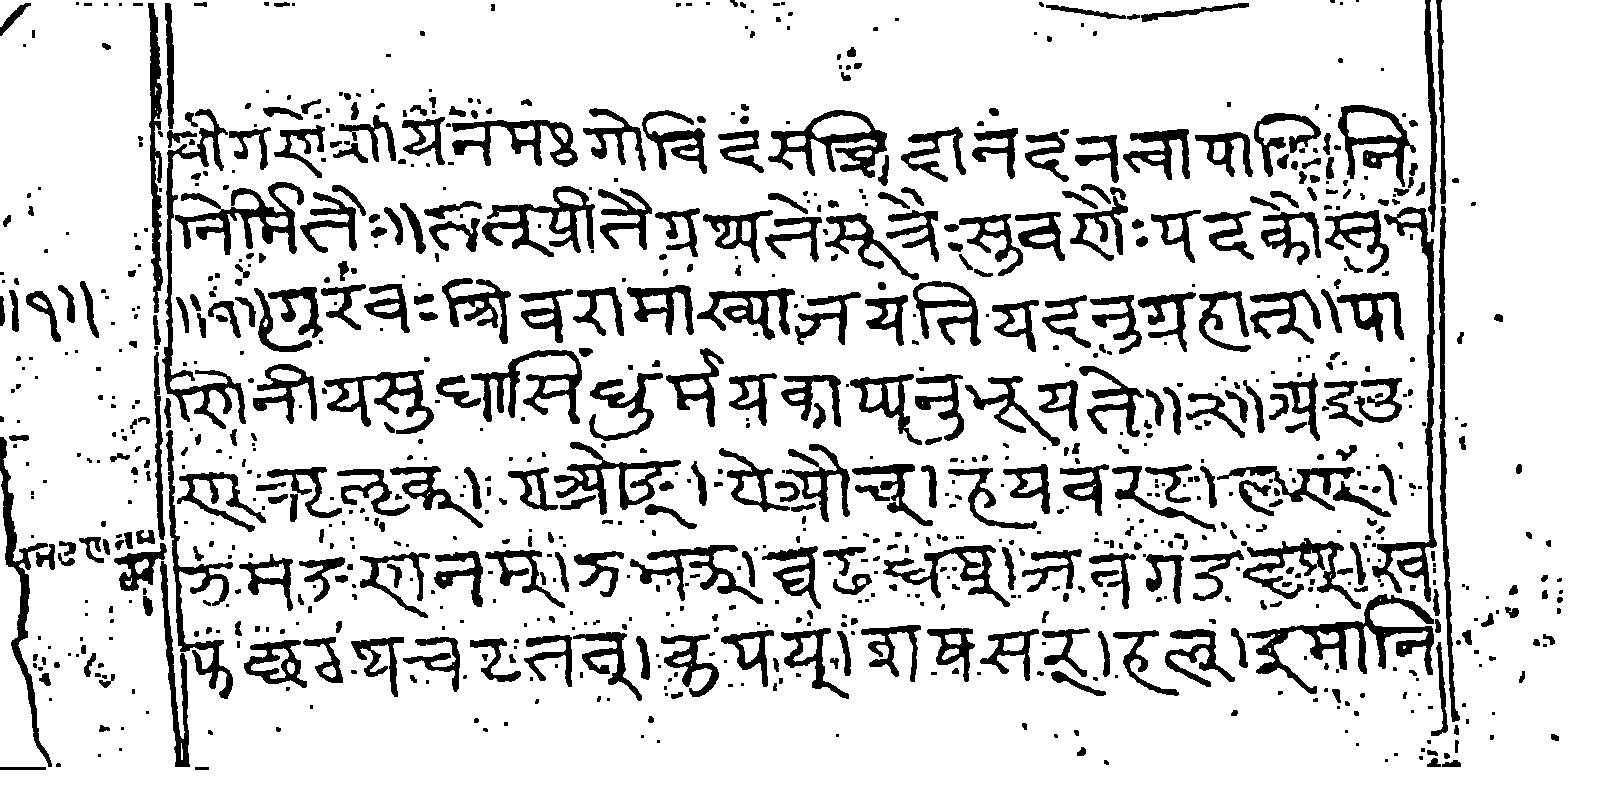 श्रीगणेशायनमः गोविंदंसच्चिदानंदंनत्वापाणिनि
निर्मितैः॥तत्प्रीतैग्रथ्यतेसूत्रैःसुवर्णैःपदकौस्तुभ
॥१॥गुरवःशिवरामाख्याजयंतियदनुग्रहात्॥पा
णिनीयसुधासिंधुर्मयकाप्यनुभूयते॥२॥अइउ
ण्।ऋऌक्।एओङ्।ऐऔच्।हयवरट्।लण्।
ञमङणनम्।झभञ्।घढधष्।जबगडदश्।ख
फछठथचटतव्।कपय्।शषसर्।हल्।इमानि
॥१॥